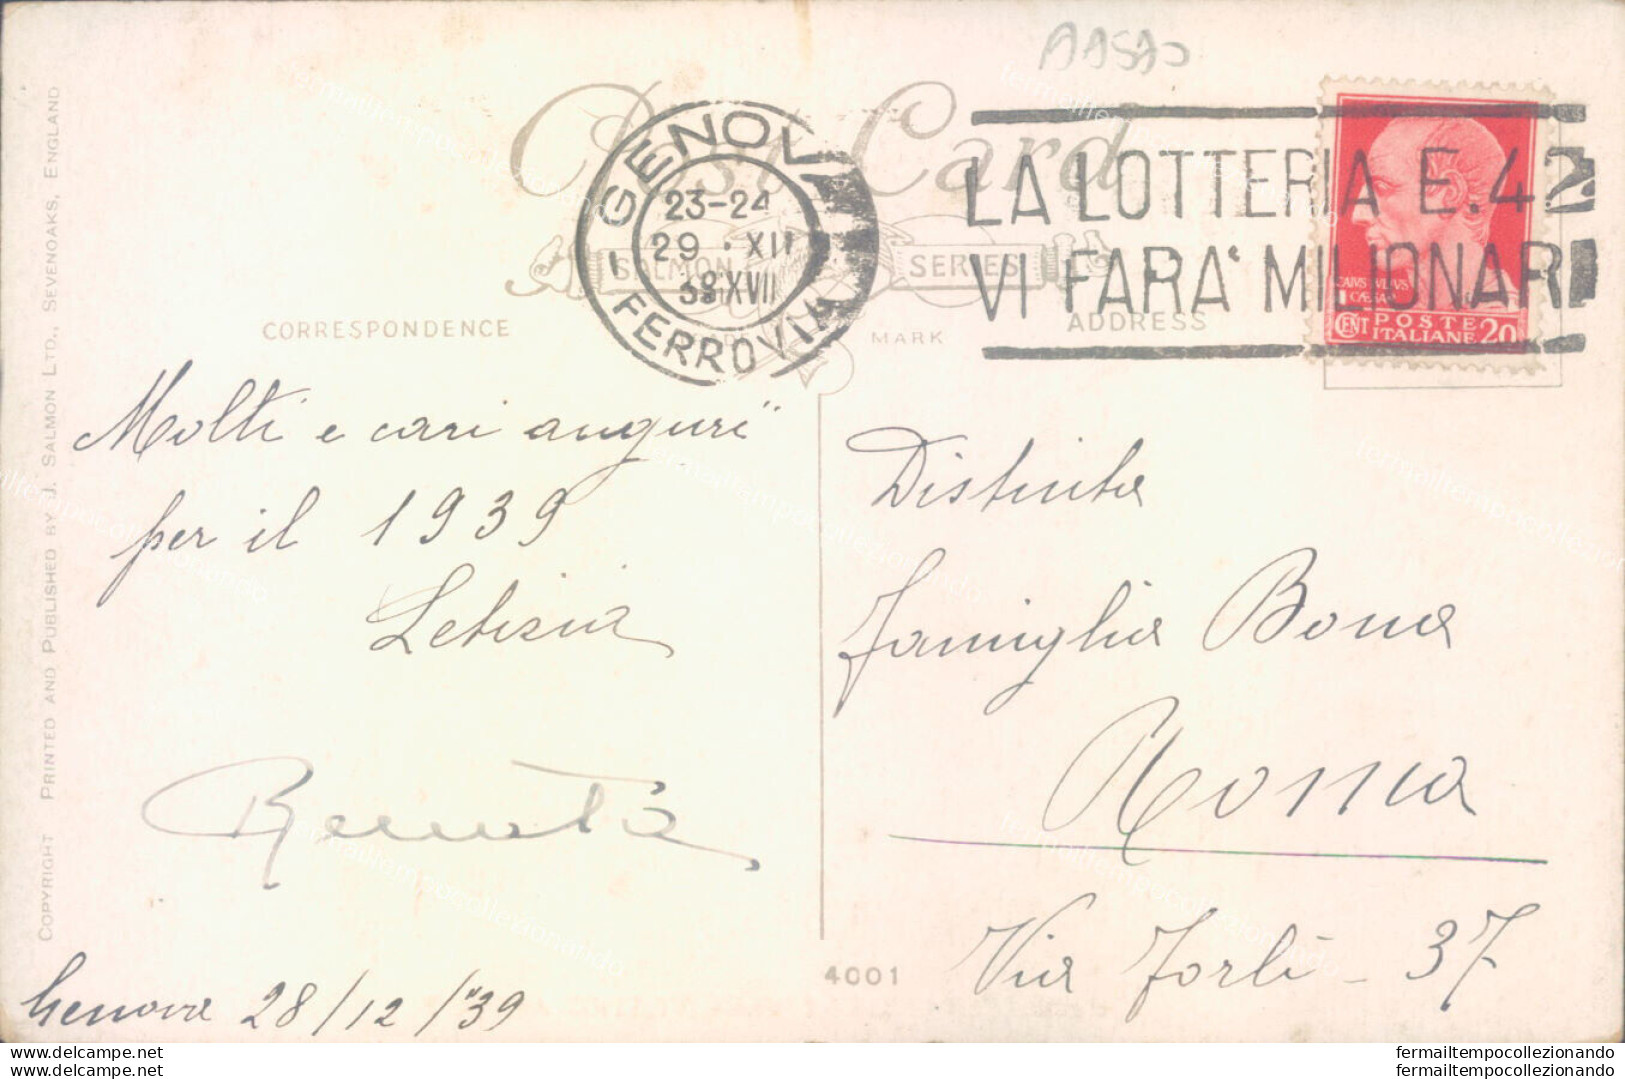 AASAO
Post Card
GENOVA
FERROVIA
23-24
29 · XII
38 XVII
LA LOTTERIA E.42
VI FARA' MILIONARI
SALMON SERIES
CAIVS IVLIVS
CAESAR
CENT POSTE
ITALIANE 20
CORRESPONDENCE
TRADE MARK
ADDRESS
Molti e cari auguri
per il 1939
Letizia
Renata
Genova 28/12/"39
Distinta
famiglia Bona
Roma
Via Forlì - 37
4001
COPYRIGHT PRINTED AND PUBLISHED BY J. SALMON LTD., SEVENOAKS, ENGLAND
www.delcampe.net
www.delcampe.net
fermailtempocollezionando
fermailtempocollezionando